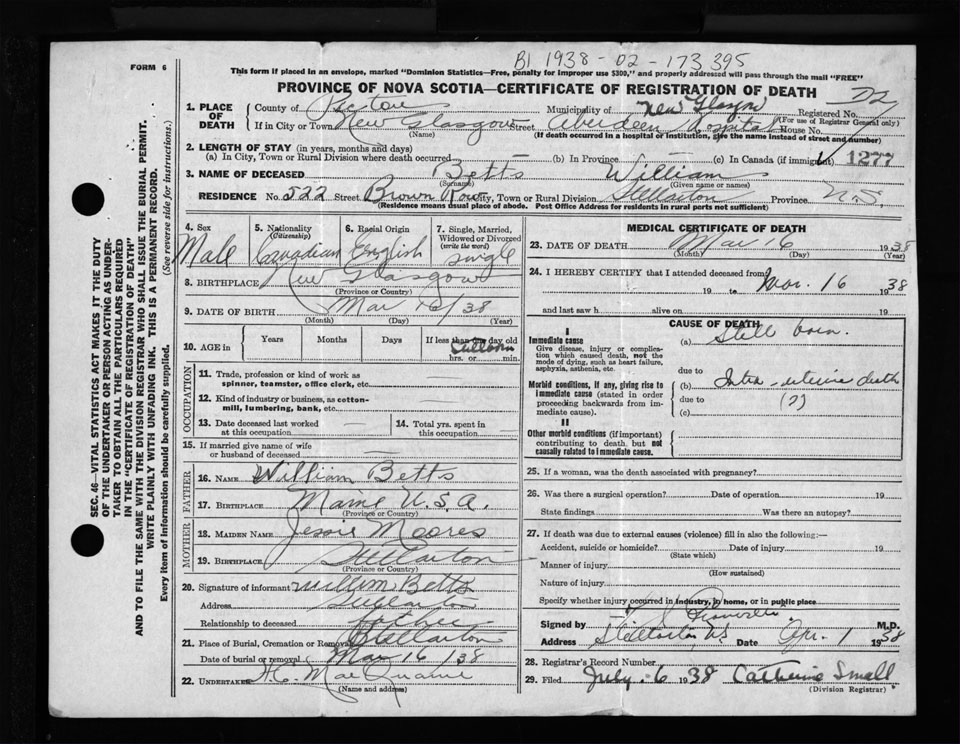 B1 1938 - 02 - 173395
FORM 6
This form if placed in an envelope, marked "Dominion Statistics—Free, penalty for improper use $300," and properly addressed will pass through the mail "FREE"
PROVINCE OF NOVA SCOTIA—CERTIFICATE OF REGISTRATION OF DEATH
1. PLACE OF DEATH County of Pictou Municipality of New Glasgow Registered No.
(For use of Registrar General only)
If in City or Town New Glasgow Street Aberdeen Hospital House No.
(Name) (If death occurred in a hospital or institution, give the name instead of street and number)
2. LENGTH OF STAY (in years, months and days)
(a) In City, Town or Rural Division where death occurred (b) In Province (c) In Canada (if immigrant) 1277
3. NAME OF DECEASED Betts William
(Surname) (Given name or names)
RESIDENCE No. 522 Street Brown Row City, Town or Rural Division Stellarton Province N.S.
(Residence means usual place of abode. Post Office Address for residents in rural parts not sufficient)
4. Sex Male
5. Nationality (Citizenship) Canadian
6. Racial Origin English
7. Single, Married, Widowed or Divorced (write the word) single
8. BIRTHPLACE New Glasgow
(Province or Country)
9. DATE OF BIRTH Mar 16/38
(Month) (Day) (Year)
10. AGE in Years Months Days If less than one day old
hrs. or min.
Stillborn
OCCUPATION
11. Trade, profession or kind of work as spinner, teamster, office clerk, etc.
12. Kind of industry or business, as cotton-mill, lumbering, bank, etc.
13. Date deceased last worked at this occupation
14. Total yrs. spent in this occupation
15. If married give name of wife or husband of deceased
FATHER
16. NAME William Betts
17. BIRTHPLACE Maine U.S.A.
(Province or Country)
MOTHER
18. MAIDEN NAME Jessie Moores
19. BIRTHPLACE Stellarton
(Province or Country)
20. Signature of informant William Betts
Address Stellarton
Relationship to deceased father
21. Place of Burial, Cremation or Removal Stellarton
Date of burial or removal Mar 16/38
22. UNDERTAKER
(Name and address)
MEDICAL CERTIFICATE OF DEATH
23. DATE OF DEATH Mar 16 1938
(Month) (Day) (Year)
24. I HEREBY CERTIFY that I attended deceased from
19 to Mar. 16 1938
and last saw h alive on 19
CAUSE OF DEATH
I
Immediate cause
Give disease, injury or complication which caused death, not the mode of dying, such as heart failure, asphyxia, asthenia, etc.
(a) Still born.
due to
Morbid conditions, if any, giving rise to immediate cause (stated in order proceeding backwards from immediate cause).
(b) Intra-uterine death
due to (?)
(c)
II
Other morbid conditions (if important) contributing to death, but not causally related to immediate cause.
25. If a woman, was the death associated with pregnancy?
26. Was there a surgical operation? Date of operation 19
State findings Was there an autopsy?
27. If death was due to external causes (violence) fill in also the following:—
Accident, suicide or homicide? Date of injury 19
(State which)
Manner of injury
(How sustained)
Nature of injury
Specify whether injury occurred in industry, in home, or in public place
Signed by M.D.
Address Stellarton N.S. Date Apr. 1 1938
28. Registrar's Record Number
29. Filed July 6 1938 Catherine Small
(Division Registrar)
SEC. 46—VITAL STATISTICS ACT MAKES IT THE DUTY
OF THE UNDERTAKER OR PERSON ACTING AS UNDER-
TAKER TO OBTAIN ALL THE PARTICULARS REQUIRED
IN THE "CERTIFICATE OF REGISTRATION OF DEATH"
AND TO FILE THE SAME WITH THE DIVISION REGISTRAR WHO SHALL ISSUE THE BURIAL PERMIT.
WRITE PLAINLY WITH UNFADING INK. THIS IS A PERMANENT RECORD.
Every item of information should be carefully supplied. (See reverse side for instructions.)